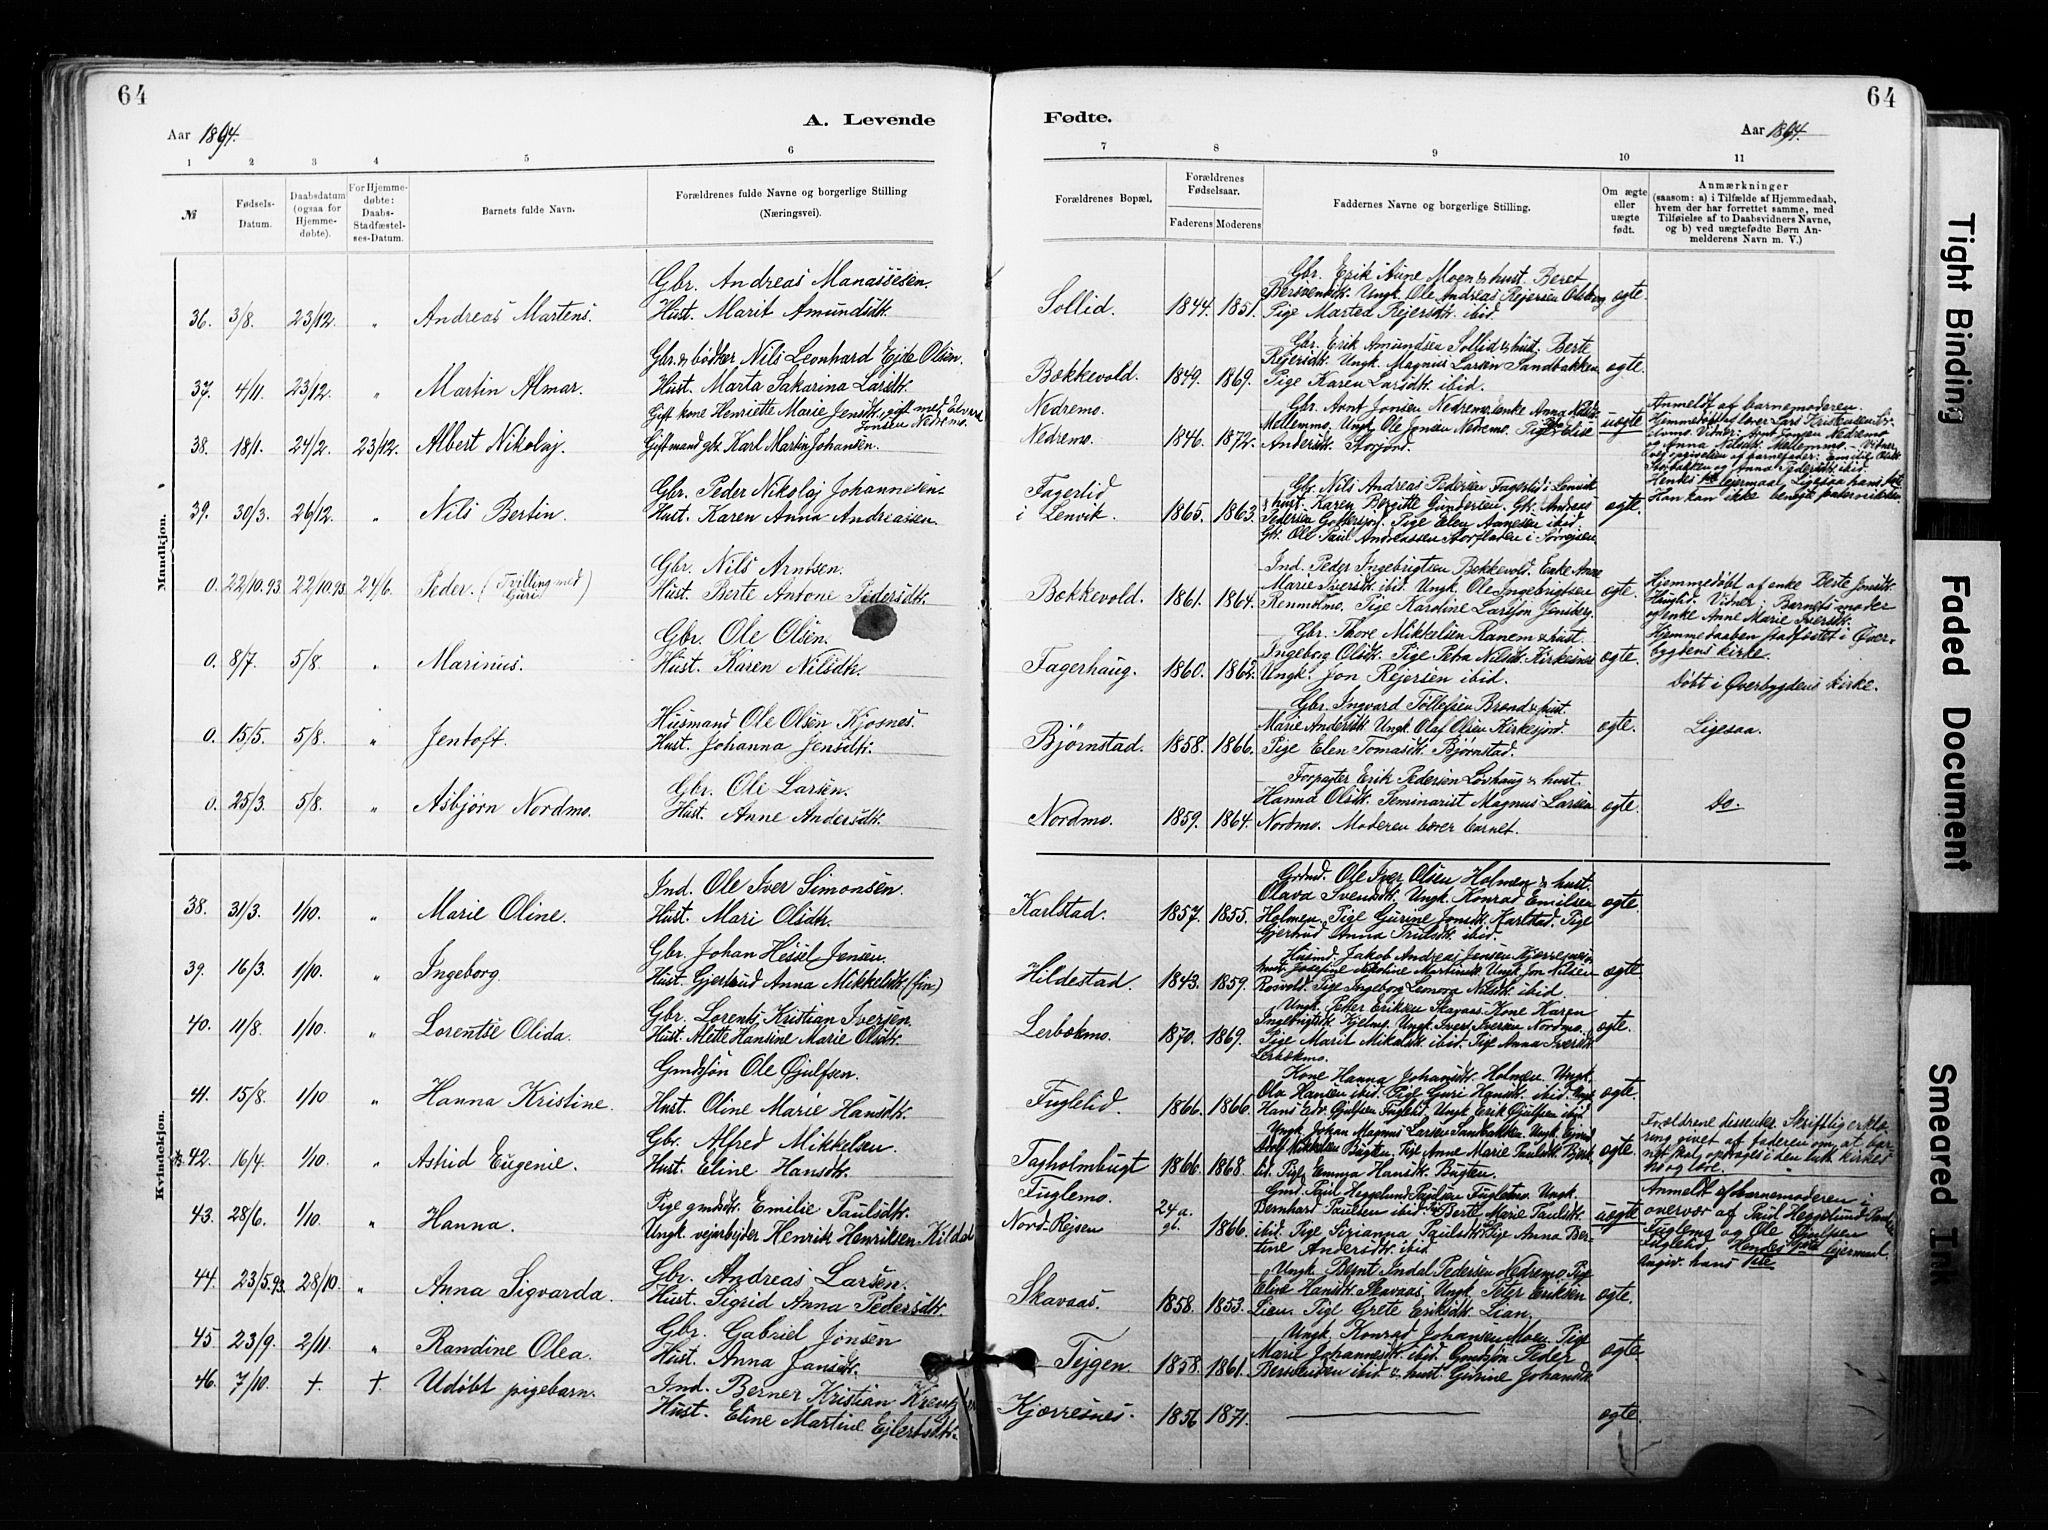 64
Aar 1894.
A. Levende
1 2 3 4 5 6
№
Fødsels-Datum.
Daabsdatum (ogsaa for Hjemmedøbte).
For Hjemmedøbte: Daabs-Stadfæstelses-Datum.
Barnets fulde Navn.
Forældrenes fulde Navne og borgerlige Stilling
(Næringsvei).
Mandkjøn.
Gbr. Andreas Manassesen.
36. 3/8. 23/12. " Andreas Martens. Hust. Marit Amundsdtr.
Gbr. & bødker Nils Leonhard Ejde Olsen.
37. 4/11. 23/12. " Martin Almar. Hust. Marta Sakarina Larsdtr.
Gift kone Henriette Marie Jensdtr. gift med Edvard
Jonsen Nedremo.
38. 18/1. 24/2. 23/12. Albert Nikolaj. Gift mand gbr. Karl Martin Johansen.
Gbr. Peder Nikolaj Johannesen
39. 30/3. 26/12. " Nils Bertin. Hust. Karen Anna Andreassen.
Gbr. Nils Arntsen.
0. 22/10.93. 22/10.93. 24/6. Peder. (Tvilling med Guri) Hust. Berte Antone Pedersdtr.
Gbr. Ole Olsen.
0. 8/7. 5/8. " Marinus. Hust. Karen Nilsdtr.
Husmand Ole Olsen Kjosnes.
0. 15/5. 5/8. " Jentoft. Hust. Johanna Jensdtr.
Gbr. Ole Larsen.
0. 25/3. 5/8. " Asbjørn Nordmo. Hust. Anne Andersdtr.
Kvindekjøn.
Ind. Ole Iver Simonsen.
38. 31/3. 1/10. " Marie Oline. Hust. Mari Olsdtr.
Gbr. Johan Hessel Jensen.
39. 16/3. 1/10. " Ingeborg. Hust. Gjertrud Anna Mikkelsdtr. (fin)
Gbr. Lorents Kristian Iversen.
40. 11/8. 1/10. " Lorentse Olida. Hust. Alette Hansine Marie Olsdtr.
Gmdsjøn Ole Gjulfsen.
41. 15/8. 1/10 " Hanna Kristine. Hust. Oline Marie Hansdtr.
Gbr. Alfred Mikkelsen
42. 16/4. 1/10. " Astrid Eugenie. Hust. Eline Hansdtr.
Pige gmdsdtr. Emilie Paulsdtr.
43. 28/6. 1/10. " Hanna. Ungk. vejarbejder Henrik Henriksen Kildal
Gbr. Andreas Larsen.
44. 23/5.93. 28/10. " Anna Sigvarda. Hust. Sigrid Anna Pedersdtr.
Gbr. Gabriel Jonsen
45. 23/9. 2/11. " Randine Olea. Hust. Anna Jansdtr.
46. 7/10. + + Udøbt pigebarn. Ind. Berner Kristian
Hust. Eline Martine Ejlertsdtr.
64
Fødte.
Aar 1894.
7 8 9 10 11
Forældrenes Bopæl.
Forældrenes Fødselsaar.
Faderens Moderens
Faddernes Navne og borgerlige Stilling.
Om ægte eller uægte født.
Anmærkninger
(saasom: a) i Tilfælde af Hjemmedaab,
hvem der har forrettet samme, med
Tilføielse af to Daabsvidners Navne,
og b) ved uægtefødte Børn An-
melderens Navn m. V.)
Gbr. Erik Aune Moen & hust. Beret
Ungk. Ole Andreas Rejersen Olsborg
Sollid. 1844. 1851. Pige Marted Rejersdtr. ibid. ægte.
Gbr. Erik Amundsen Sollid & hust. Berte
Rejersdtr. Ungk. Magnus Larsen Sandbakken
Bækkevold. 1849. 1869. Pige Karen Larsdtr. ibid. ægte.
Nedremo. Gbr. Arnt Jonsen Nedremo. Enke Anna Nilsdtr.
Mellemmo. Ungk. Ole Jonsen Nedremo. Pige Elise
Nedremo. 1846. 1872. Andersdtr. Storjord. uægte
Anmeldt af barnemoderen.
Hjemmedøbt af lærer Lars Kristensen
Vidner: Arnt Jonsen Nedremo
og Anna Nilsdtr. Mellemmo.
og Anna Pedersdtr. ibid.
Hendes 1ste lejermaal. Ligesaa hans 1ste
Han kan ikke
Fagerlid Gbr. Nils Andreas Pedersen Fagerlid i Lenvik
& hust. Karen Bergitte Gundersen. Gbr. Andreas
i Lenvik. 1865. 1863. Pedersen Pige Elen ibid. ægte.
Gbr. Ole Paul Andreassen Storfladen i Sørrejsen
Ind. Peder Ingebrigtsen Bækkevold. Enke Anne
Marie Iversdtr. ibid. Ungk. Ole Ingebrigtsen
Bækkevold. 1861. 1864. Renmælmo. Pige Karoline Larsson Jensberg. ægte.
Hjemmedøbt af enke Berte Jonsdtr.
Haugtid. Vidner: Barnets moder
og enke Anne Marie Iversdtr.
Hjemmedaaben stadfæstet i Øver-
bygdens kirke.
Gbr. Thore Mikkelsen Ranem & hust.
Ingeborg Olsdtr. Pige Petra Nilsdtr. Kirkesnes
Fagerhaug. 1860. 1862. Ungk. Jon Rejersen ibid. ægte.
Døbt i Øverbygdens kirke.
Gbr. Ingvard Tollefsen Brand & hust.
Marie Andersdtr. Ungk. Olaf Olsen Kirkesjord.
Bjørnstad. 1858. 1866. Pige Elen Tomasdtr. Bjørnstad. ægte. Ligesaa.
Forpagter Erik Pedersen Løvhaug & hust.
Hanna Olsdtr. Seminarist Magnus Larsen
Nordmo. 1859. 1864. Nordmo. Moderen bærer barnet. ægte. Do.
Grdmd. Ole Iver Olsen Holmen & hust.
Olava Svendsdtr. Ungk. Konrad Emilsen
Karlstad. 1857. 1855. Holmen. Pige Gurine Jonsdtr. Karlstad. Pige
Gjertrud Anna Trulsdtr. ibid. ægte.
Husmd. Jakob Andreas Jensen Kjerresnes
hust. Josefine Nikoline Martinsdtr. Ungk. Jon Nilsen
Hildestad. 1843. 1859. Rosvold. Pige Ingeborg Leonora Nilsdtr. ibid. ægte.
Ungk. Peter Eriksen Skavaas. Kone Karen
Ingebrigtsdtr. Kjelmo. Ungk. Ivert Iversen Nordmo.
Lerbækmo. 1870. 1869. Pige Marit Mikalsdtr. ibid. Pige Anna Iversdtr.
Lerbækmo. ægte.
Kone Hanna Johansdtr. Holmen. Ungk.
Ola Hansen ibid. Pige Guri Hansdtr. ibid. Ungk.
Fuglelid. 1866. 1866. Hans Edv. Gjulfsen Fuglelid, Ungk. Erik Gjulfsen ibid. ægte
Ungk. Johan Magnus Larsen Sandbakken. Ungk.
Mikkelsen Bugten. Pige Anne Marie Paulsdtr.
Tagholmbugt 1866. 1868. Pige Emma Hansdtr. Bugten. ægte
Forældrene dissenter. Skriftlig erklæ-
ring givet af faderen om, at bar
net skal opdrages i den luth. kirkes
tro og lære.
Fuglemo. Gmd. Paul Heggelund Paulsen Fuglemo. Ungk.
24 a. Bernhard Paulsen ibid. Pige Berte Marie Paulsdtr.
Nord-Rejsen gl. 1866. ibid. Pige Sirianna Paulsdtr. Pige Anna Ber-
tine Andersdtr. ibid. uægte
Anmeldt af barnemoderen i
overvær af Paul Heggelund
Fuglemo og Ole Gjulfsen
Fuglelid. Hendes 1ste lejermaal
Angiv. hans 1ste
Ungk. Bernt Indal Pedersen Nedremo. Pige
Eline Hansdtr. Skavaas. Ungk. Peter Eriksen
Skavaas. 1858. 1853. Lien. Pige Grete Eriksdtr. Lian. ægte.
Ungk. Konrad Johansen Moen. Pige
Marie Johannesdtr. ibid. Gmdsjøn Peder
Tejgen. 1858. 1861. Berntsen ibid & hust. Gurine Johansdtr. ægte
Kjærresnes. 1856 1871. ægte.
Tight Binding
Faded Document
Smeared Ink